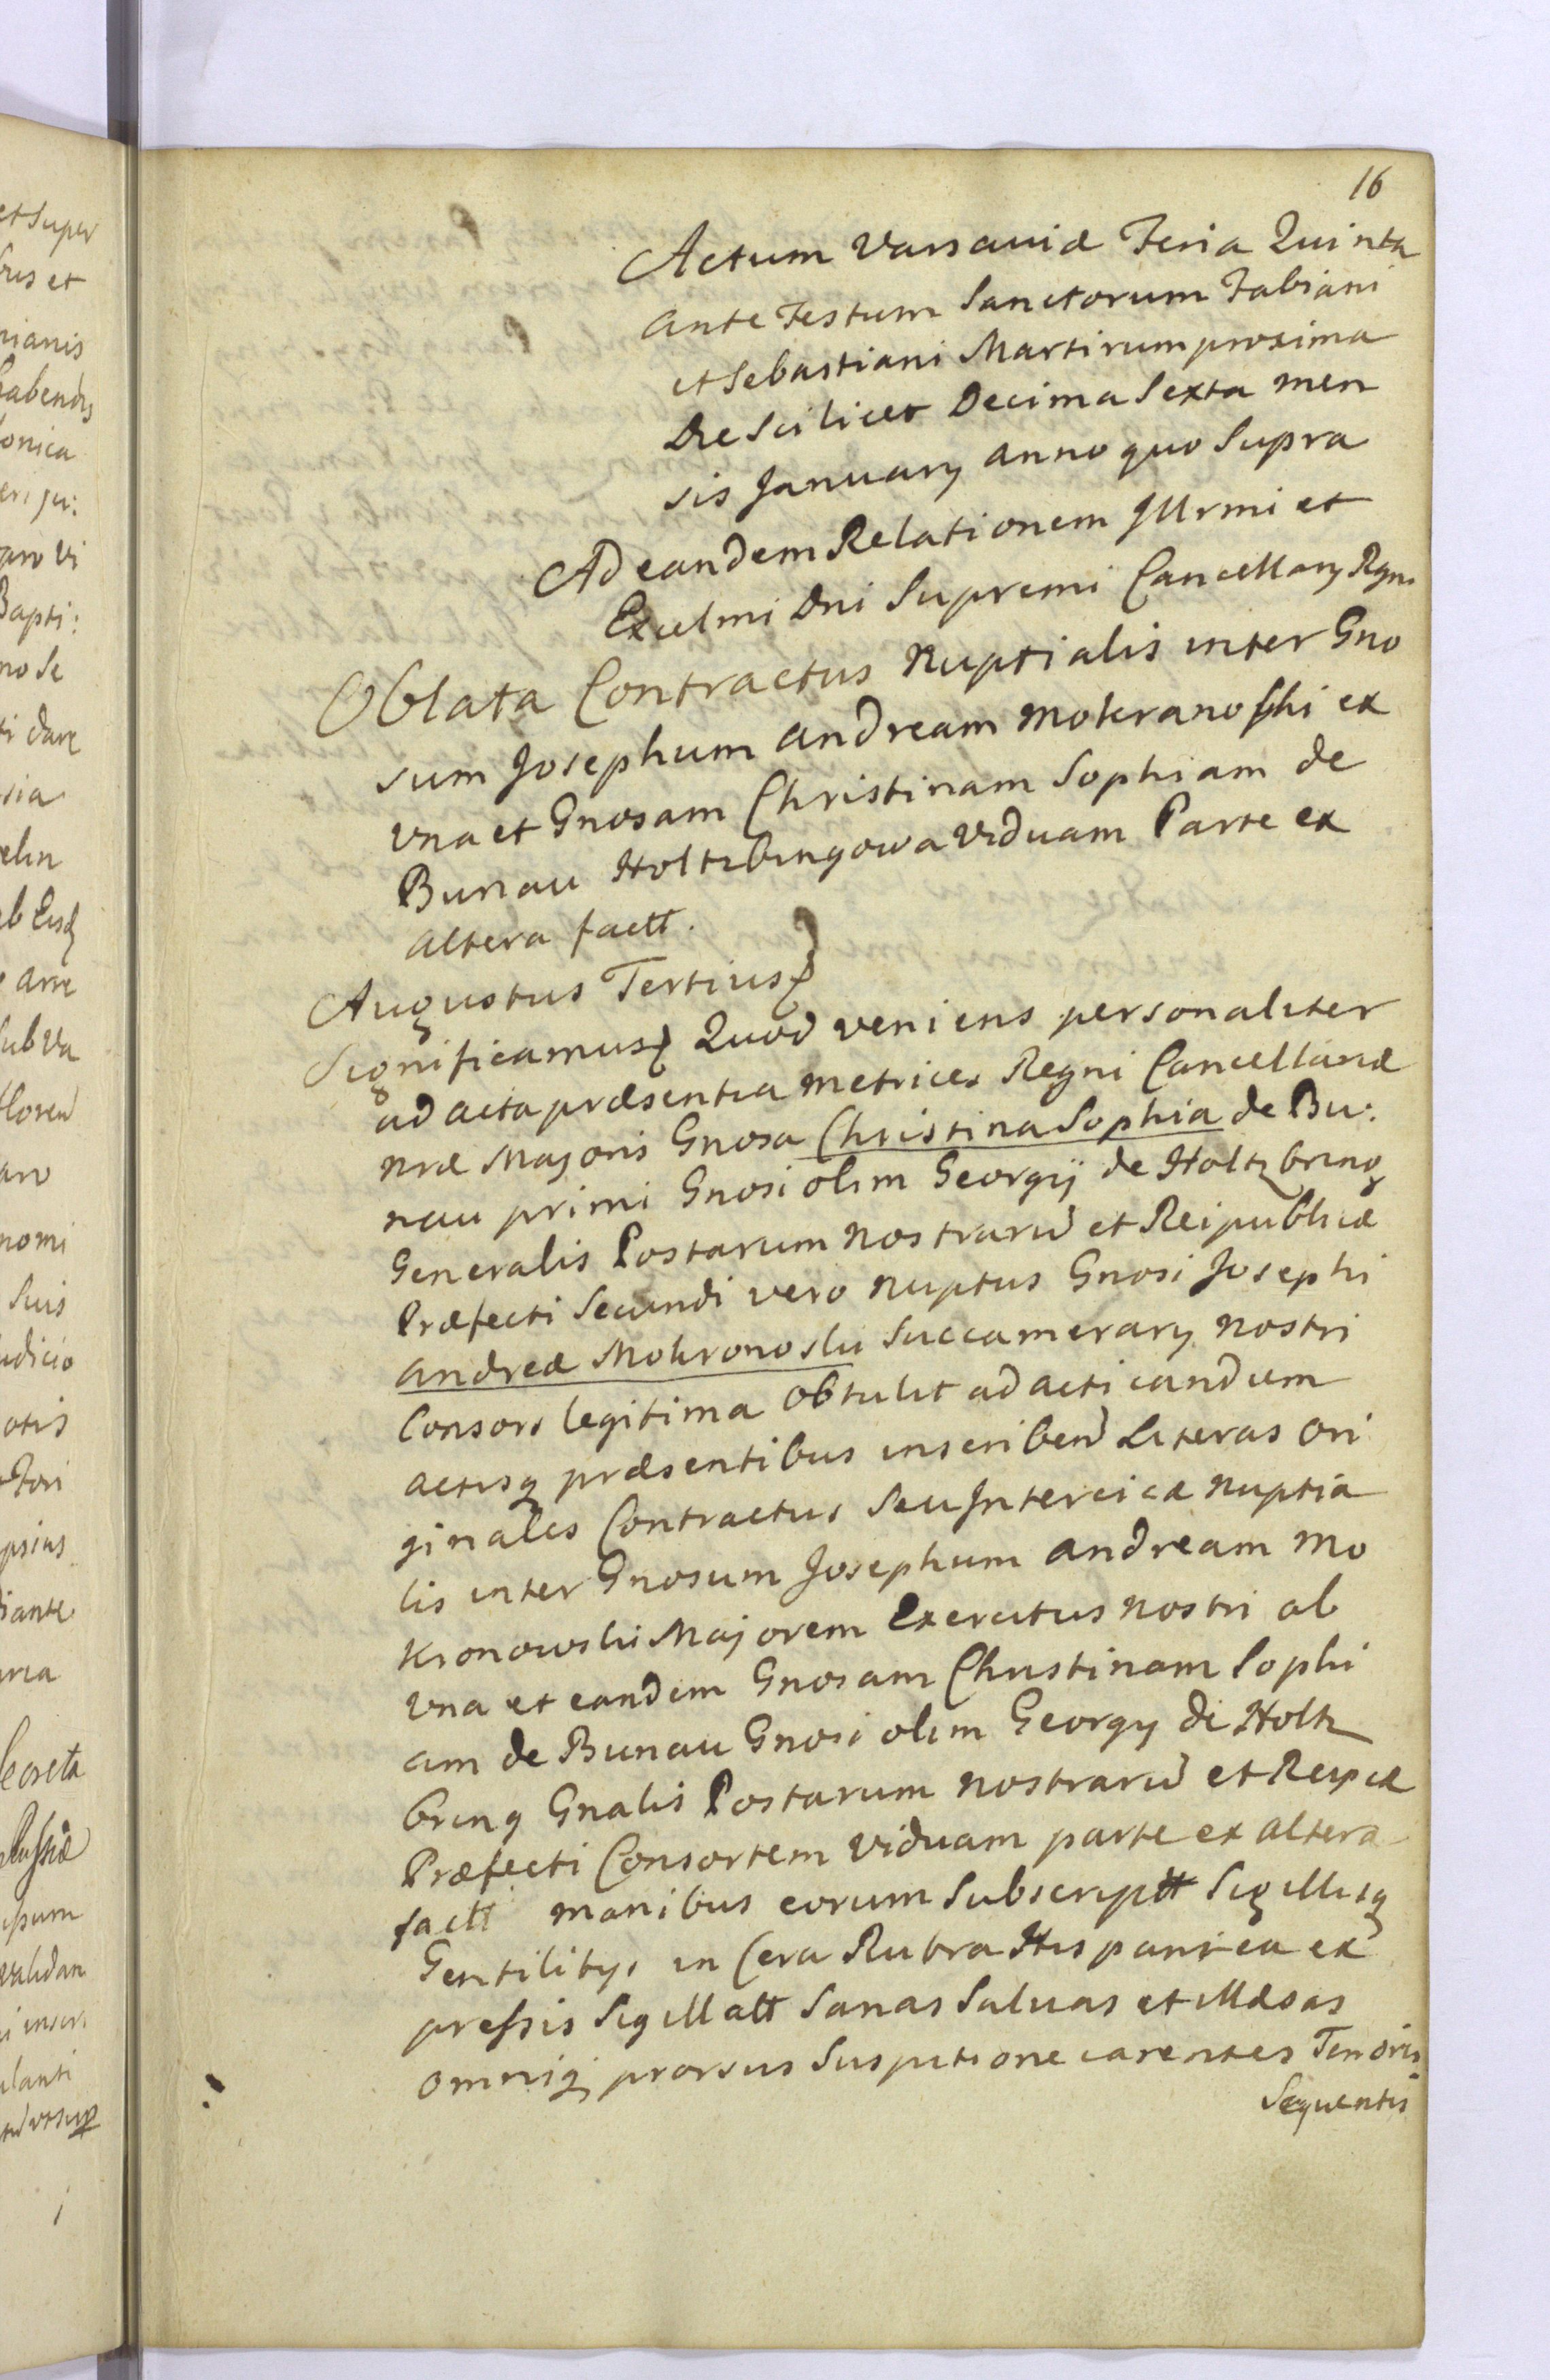 16
Actum Varsaviæ Feria Quinta
ante Festum Sanctorum Fabiani
et Sebastiani Martirum proxima
Die Scilicet Decima Sexta men
sis Januarij anno quo Supra
Ad eandem Relationem Illrmi et
Excelmi Dni Supremi Cancellarij Regni
Oblata Contractus Nuptialis inter Gno
sum Josephum Andream Mokranoski ex
Vna et Gnosam Christinam Sophiam de
Bunau Holtzbringowa Viduam Parte ex
Altera factt.
Augustus Tertius
Significamus Quod veniens personaliter
ad acta præsentia Metrices Regni Cancellariæ
nræ Majoris Gnosa Christina Sophia de Bu:
nau primi Gnosi olim Georgij de Holtzbring
Generalis Postarum Nostraru et Reipublicæ
Præfecti Secundi vero nuptus Gnosi Josephi
Andreæ Mokronoski Succamerarij nostri
Consors legitima obtulit ad acticandum
actisq præsentibus inscribend Literas Ori
ginales Contractus Seu Intercisæ Nuptia
lis inter Gnosum Josephum Andream Mo
kronowski Majorem Exercitus Nostri ab
Vna et eandem Gnosam Christinam Sophi
am de Bunau Gnosi olim Georgy de Holtz
bring Gnalis Postarum Nostraru et Reipcæ
Præfecti Consortem Viduam parte ex altera
factt manibus eorum Subscriptt Sigillisq
Gentilitys in Cera Rubra Hispanica ex
pressis Sigillatt Sanas Salvas et Illæsas
omniq prorsus Suspitione carentes Tenoris
Sequentis
et Super
nianis
habendis
onica
Bapti:
no Se
ti dare
elin
arre
Sub Va
floren
nomi
Suis
judicio
otis
ipsius
diante
ipsum
validan